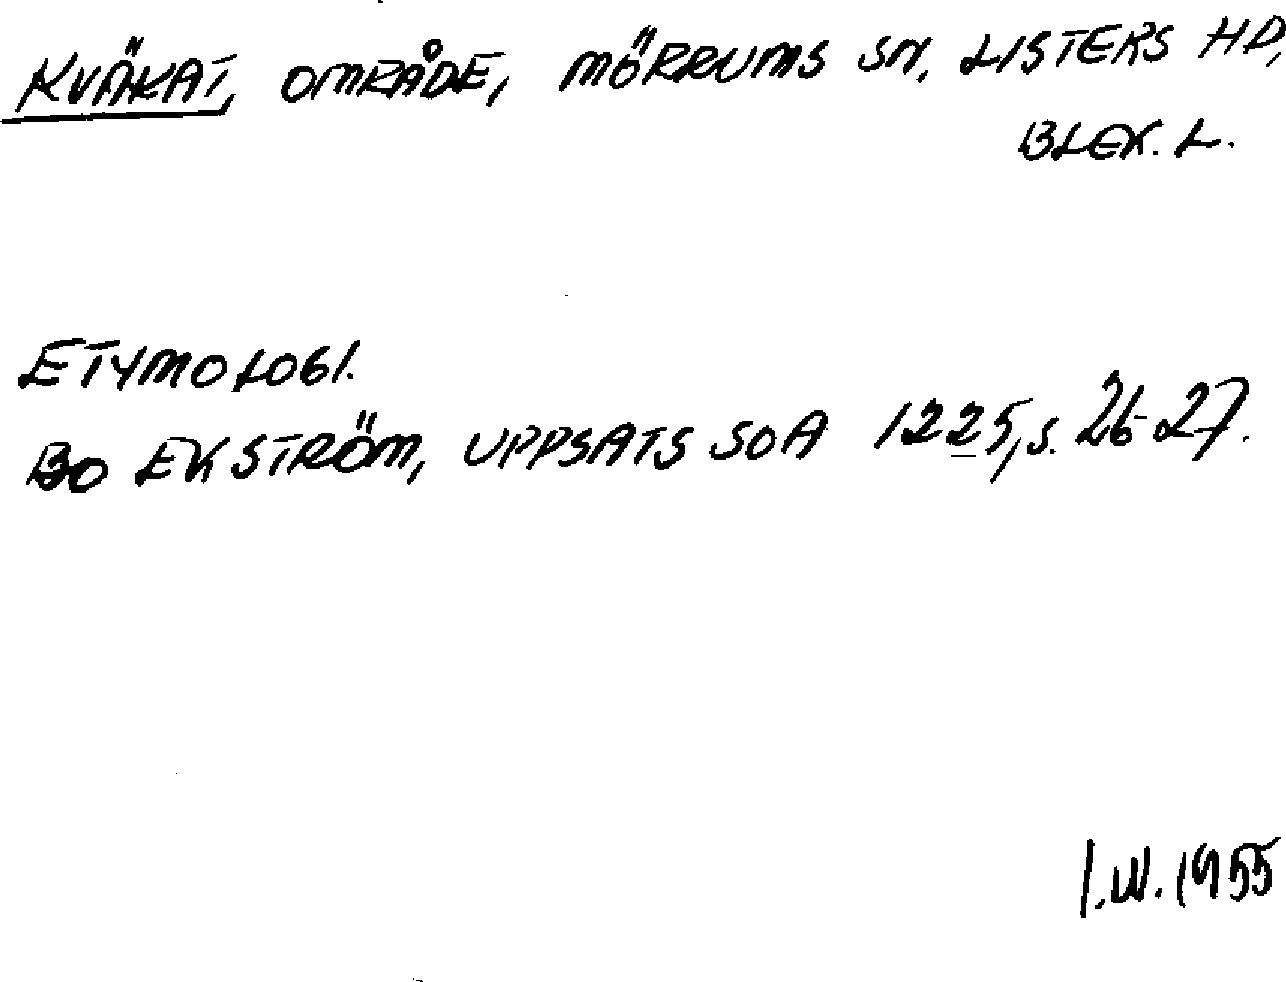 KVÄKAT, OMRÅDE, MÖRRUMS SN, LISTERS HD,
BLEK. L.
ETYMOLOGI.
BO EKSTRÖM, UPPSATS SOA 1225, S. 26-27.
I.W. 1955